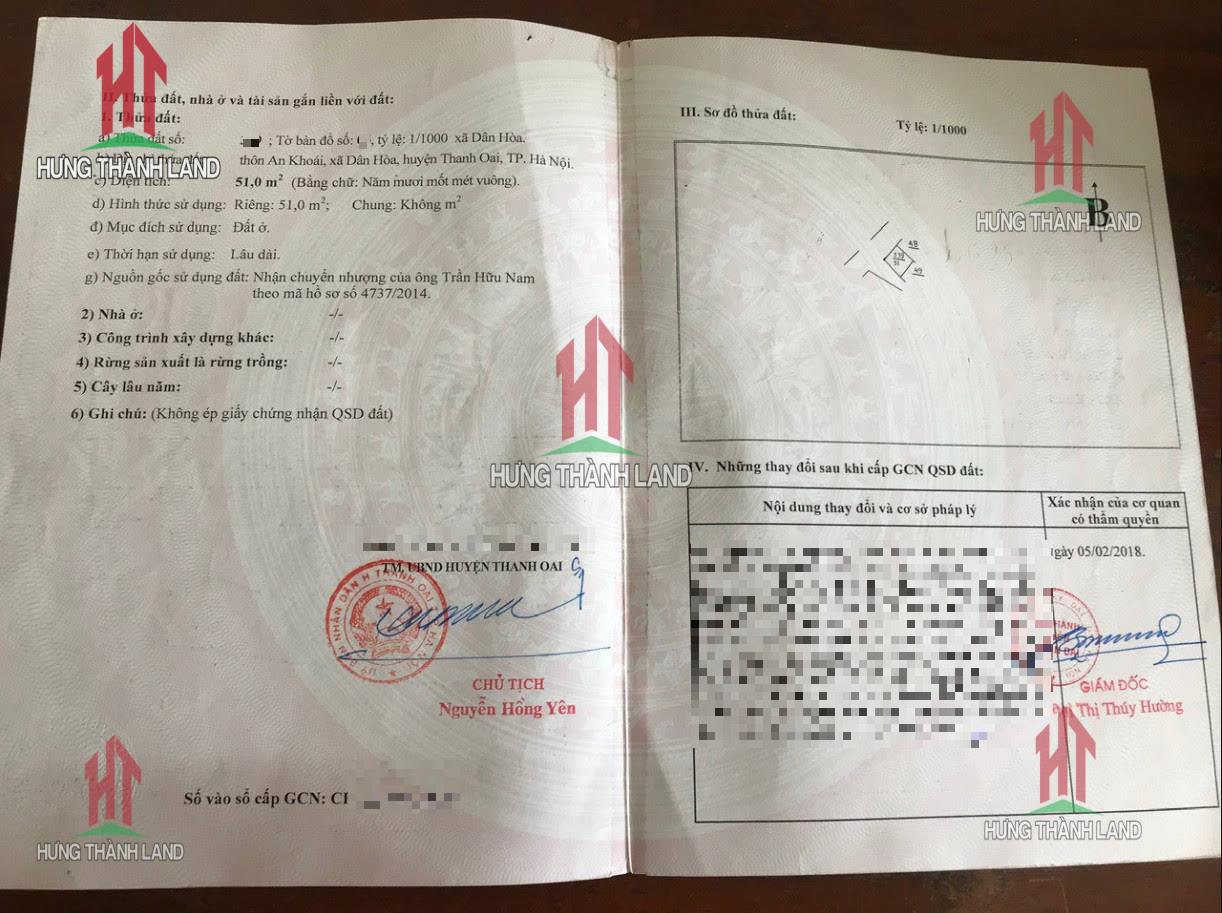 II. Thửa đất, nhà ở và tài sản gắn liền với đất:
1. Thửa đất:
a) Thửa đất số: ; Tờ bản đồ số: , tỷ lệ: 1/1000 xã Dân Hòa.
thôn An Khoái, xã Dân Hòa, huyện Thanh Oai, TP. Hà Nội.
c) Diện tích: 51,0 m² (Bằng chữ: Năm mươi mốt mét vuông).
d) Hình thức sử dụng: Riêng: 51,0 m²; Chung: Không m²
đ) Mục đích sử dụng: Đất ở.
e) Thời hạn sử dụng: Lâu dài.
g) Nguồn gốc sử dụng đất: Nhận chuyển nhượng của ông Trần Hữu Nam
theo mã hồ sơ số 4737/2014.
2) Nhà ở: -/-
3) Công trình xây dựng khác: -/-
4) Rừng sản xuất là rừng trồng: -/-
5) Cây lâu năm: -/-
6) Ghi chú: (Không ép giấy chứng nhận QSD đất)
TM. UBND HUYỆN THANH OAI
CHỦ TỊCH
Nguyễn Hồng Yên
Số vào sổ cấp GCN: CH
III. Sơ đồ thửa đất:
Tỷ lệ: 1/1000
B
48
49
IV. Những thay đổi sau khi cấp GCN QSD đất:
Nội dung thay đổi và cơ sở pháp lý
Xác nhận của cơ quan
có thẩm quyền
ngày 05/02/2018.
GIÁM ĐỐC
Thị Thúy Hường
HƯNG THÀNH LAND
HƯNG THÀNH LAND
HƯNG THÀNH LAND
HƯNG THÀNH LAND
HƯNG THÀNH LAND